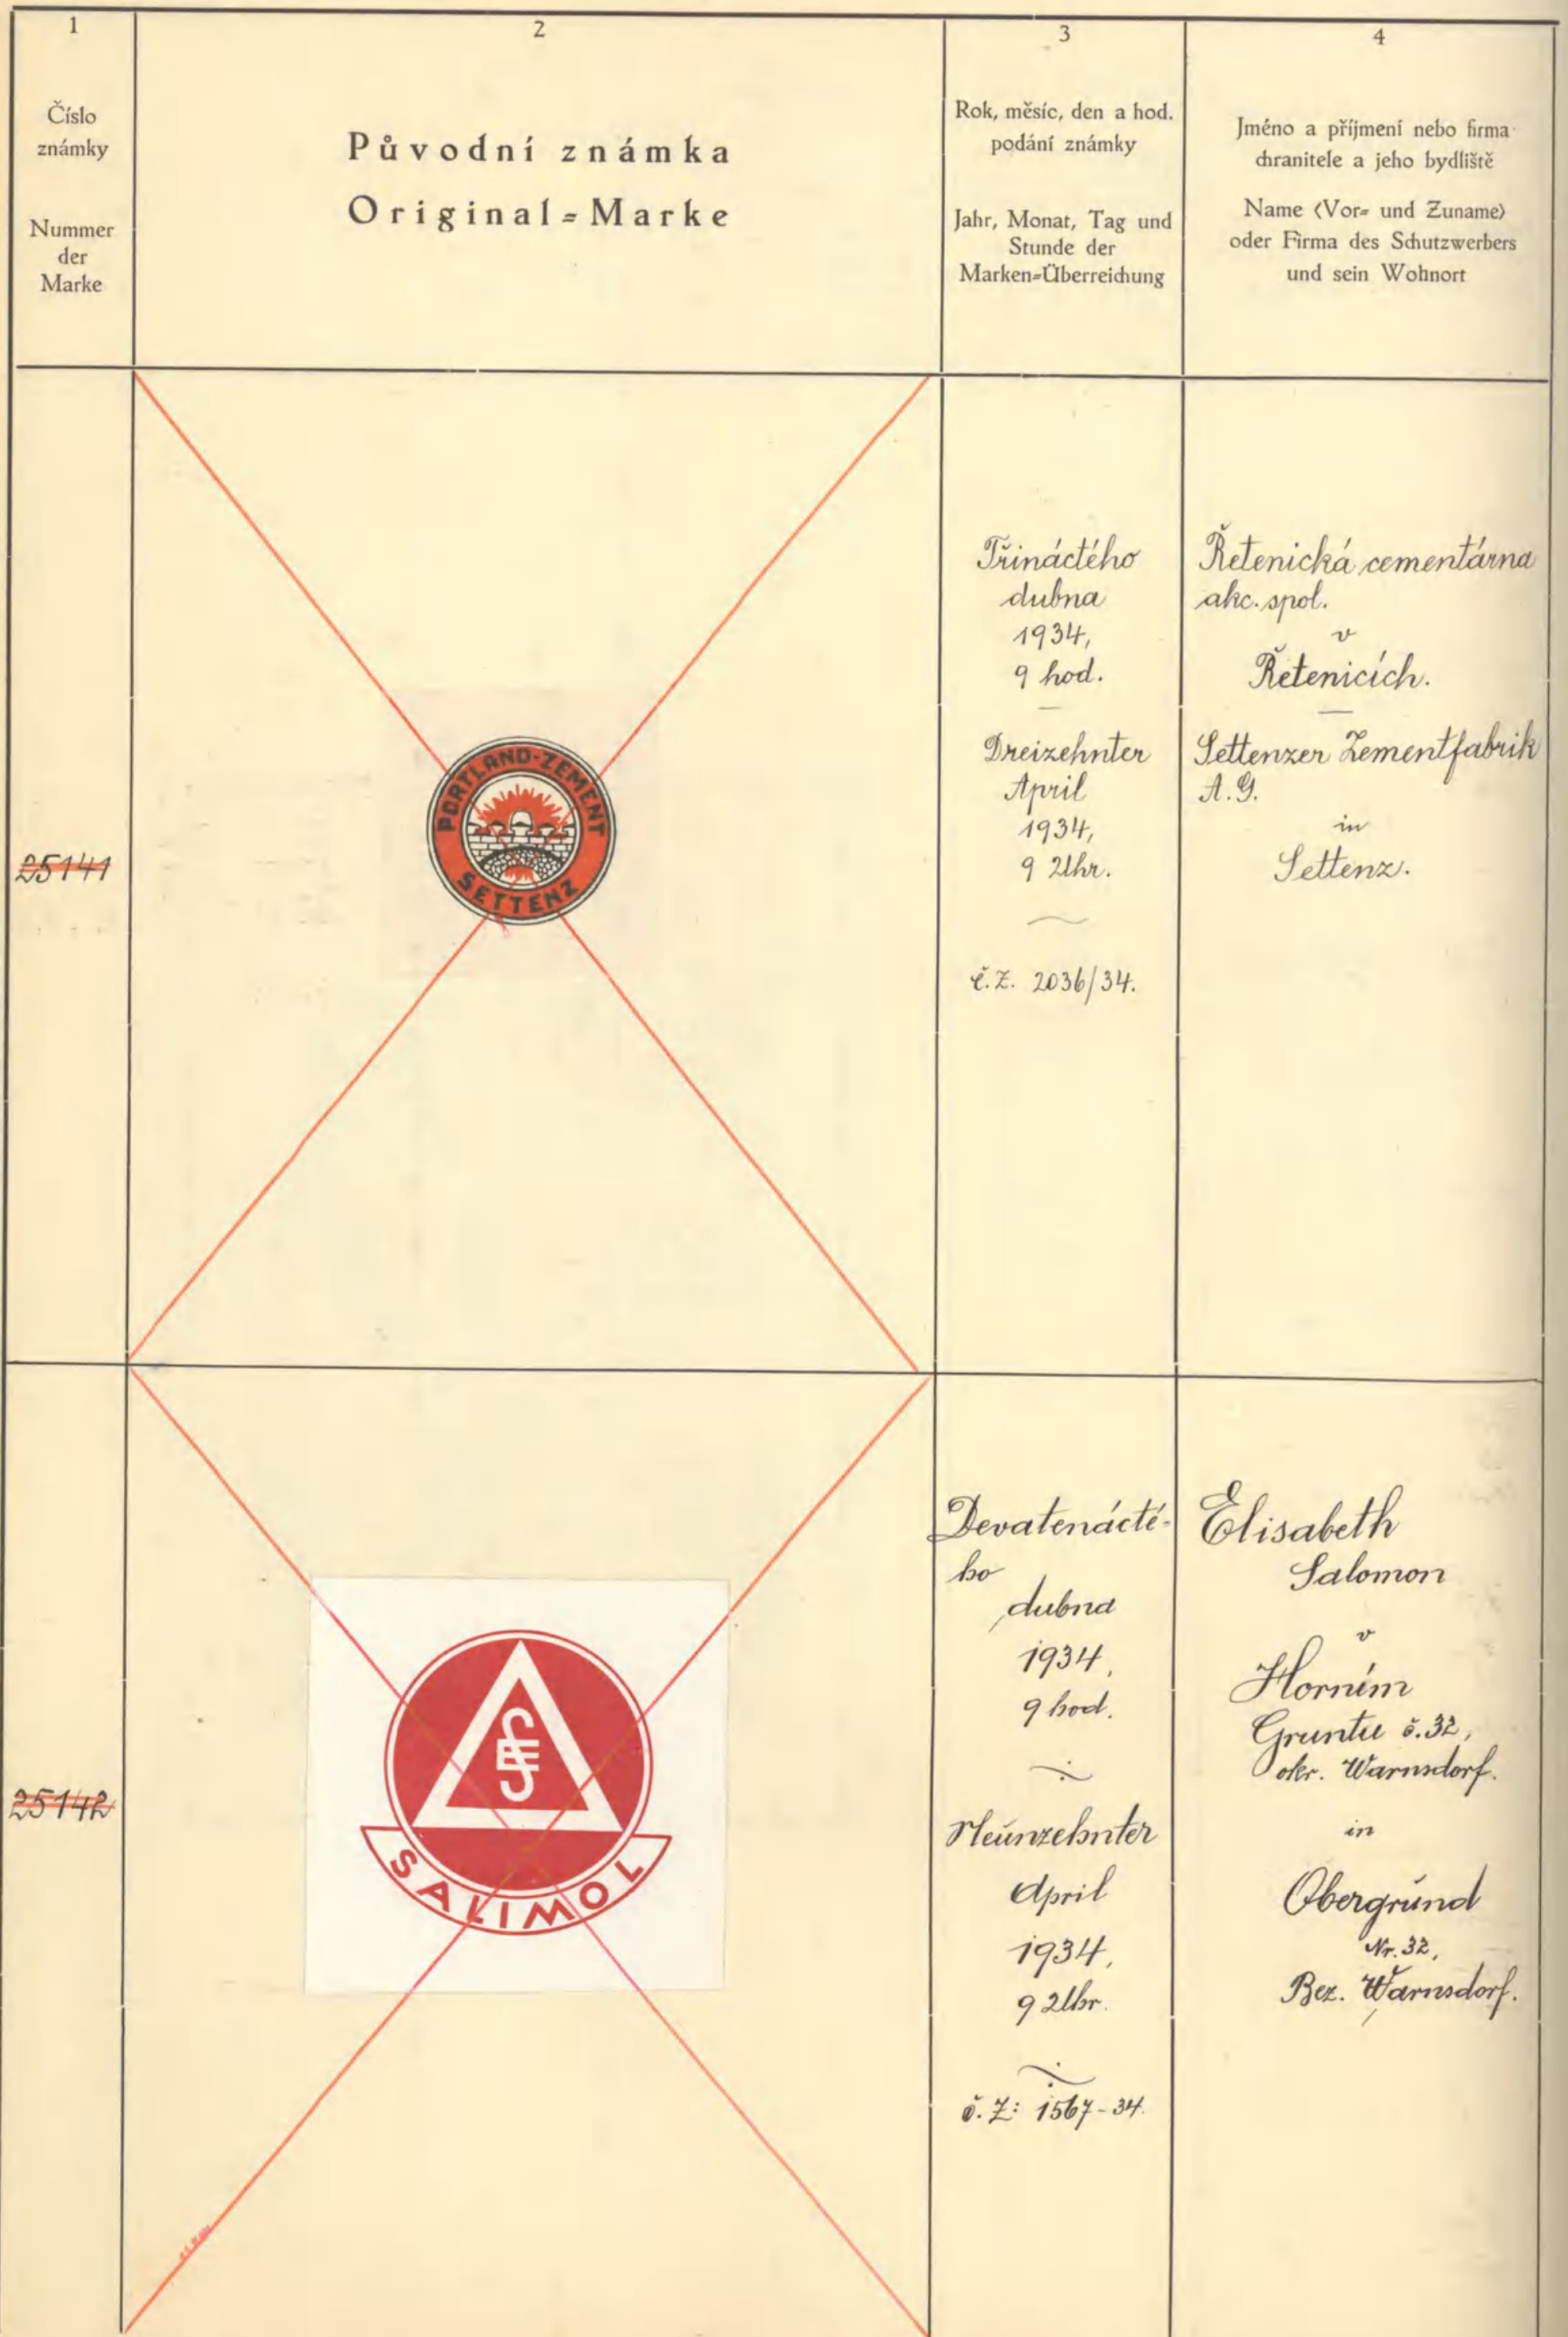 1
Číslo
známky
Nummer
der
Marke
2
Původní známka
Original=Marke
3
Rok, měsíc, den a hod.
podání známky
Jahr, Monat, Tag und
Stunde der
Marken=Überreichung
4
Jméno a příjmení nebo firma
chranitele a jeho bydliště
Name (Vor= und Zuname)
oder Firma des Schutzwerbers
und sein Wohnort
25141
PORTLAND-ZEMENT
SETTENZ
Třináctého
dubna
1934,
9 hod.
Dreizehnter
April
1934,
9 Uhr.
č.Z. 2036/34.
Řetenická cementárna
akc. spol.
v
Řetenicích.
Settenzer Zementfabrik
A.G.
in
Settenz.
25142
SALIMOL
Devatenácté-
ho
dubna
1934,
9 hod.
Neunzehnter
April
1934,
9 Uhr.
č.Z: 1567-34.
Elisabeth
Salomon
v
Horním
Gruntu č.32,
okr. Warnsdorf.
in
Obergrund
Nr. 32,
Bez. Warnsdorf.